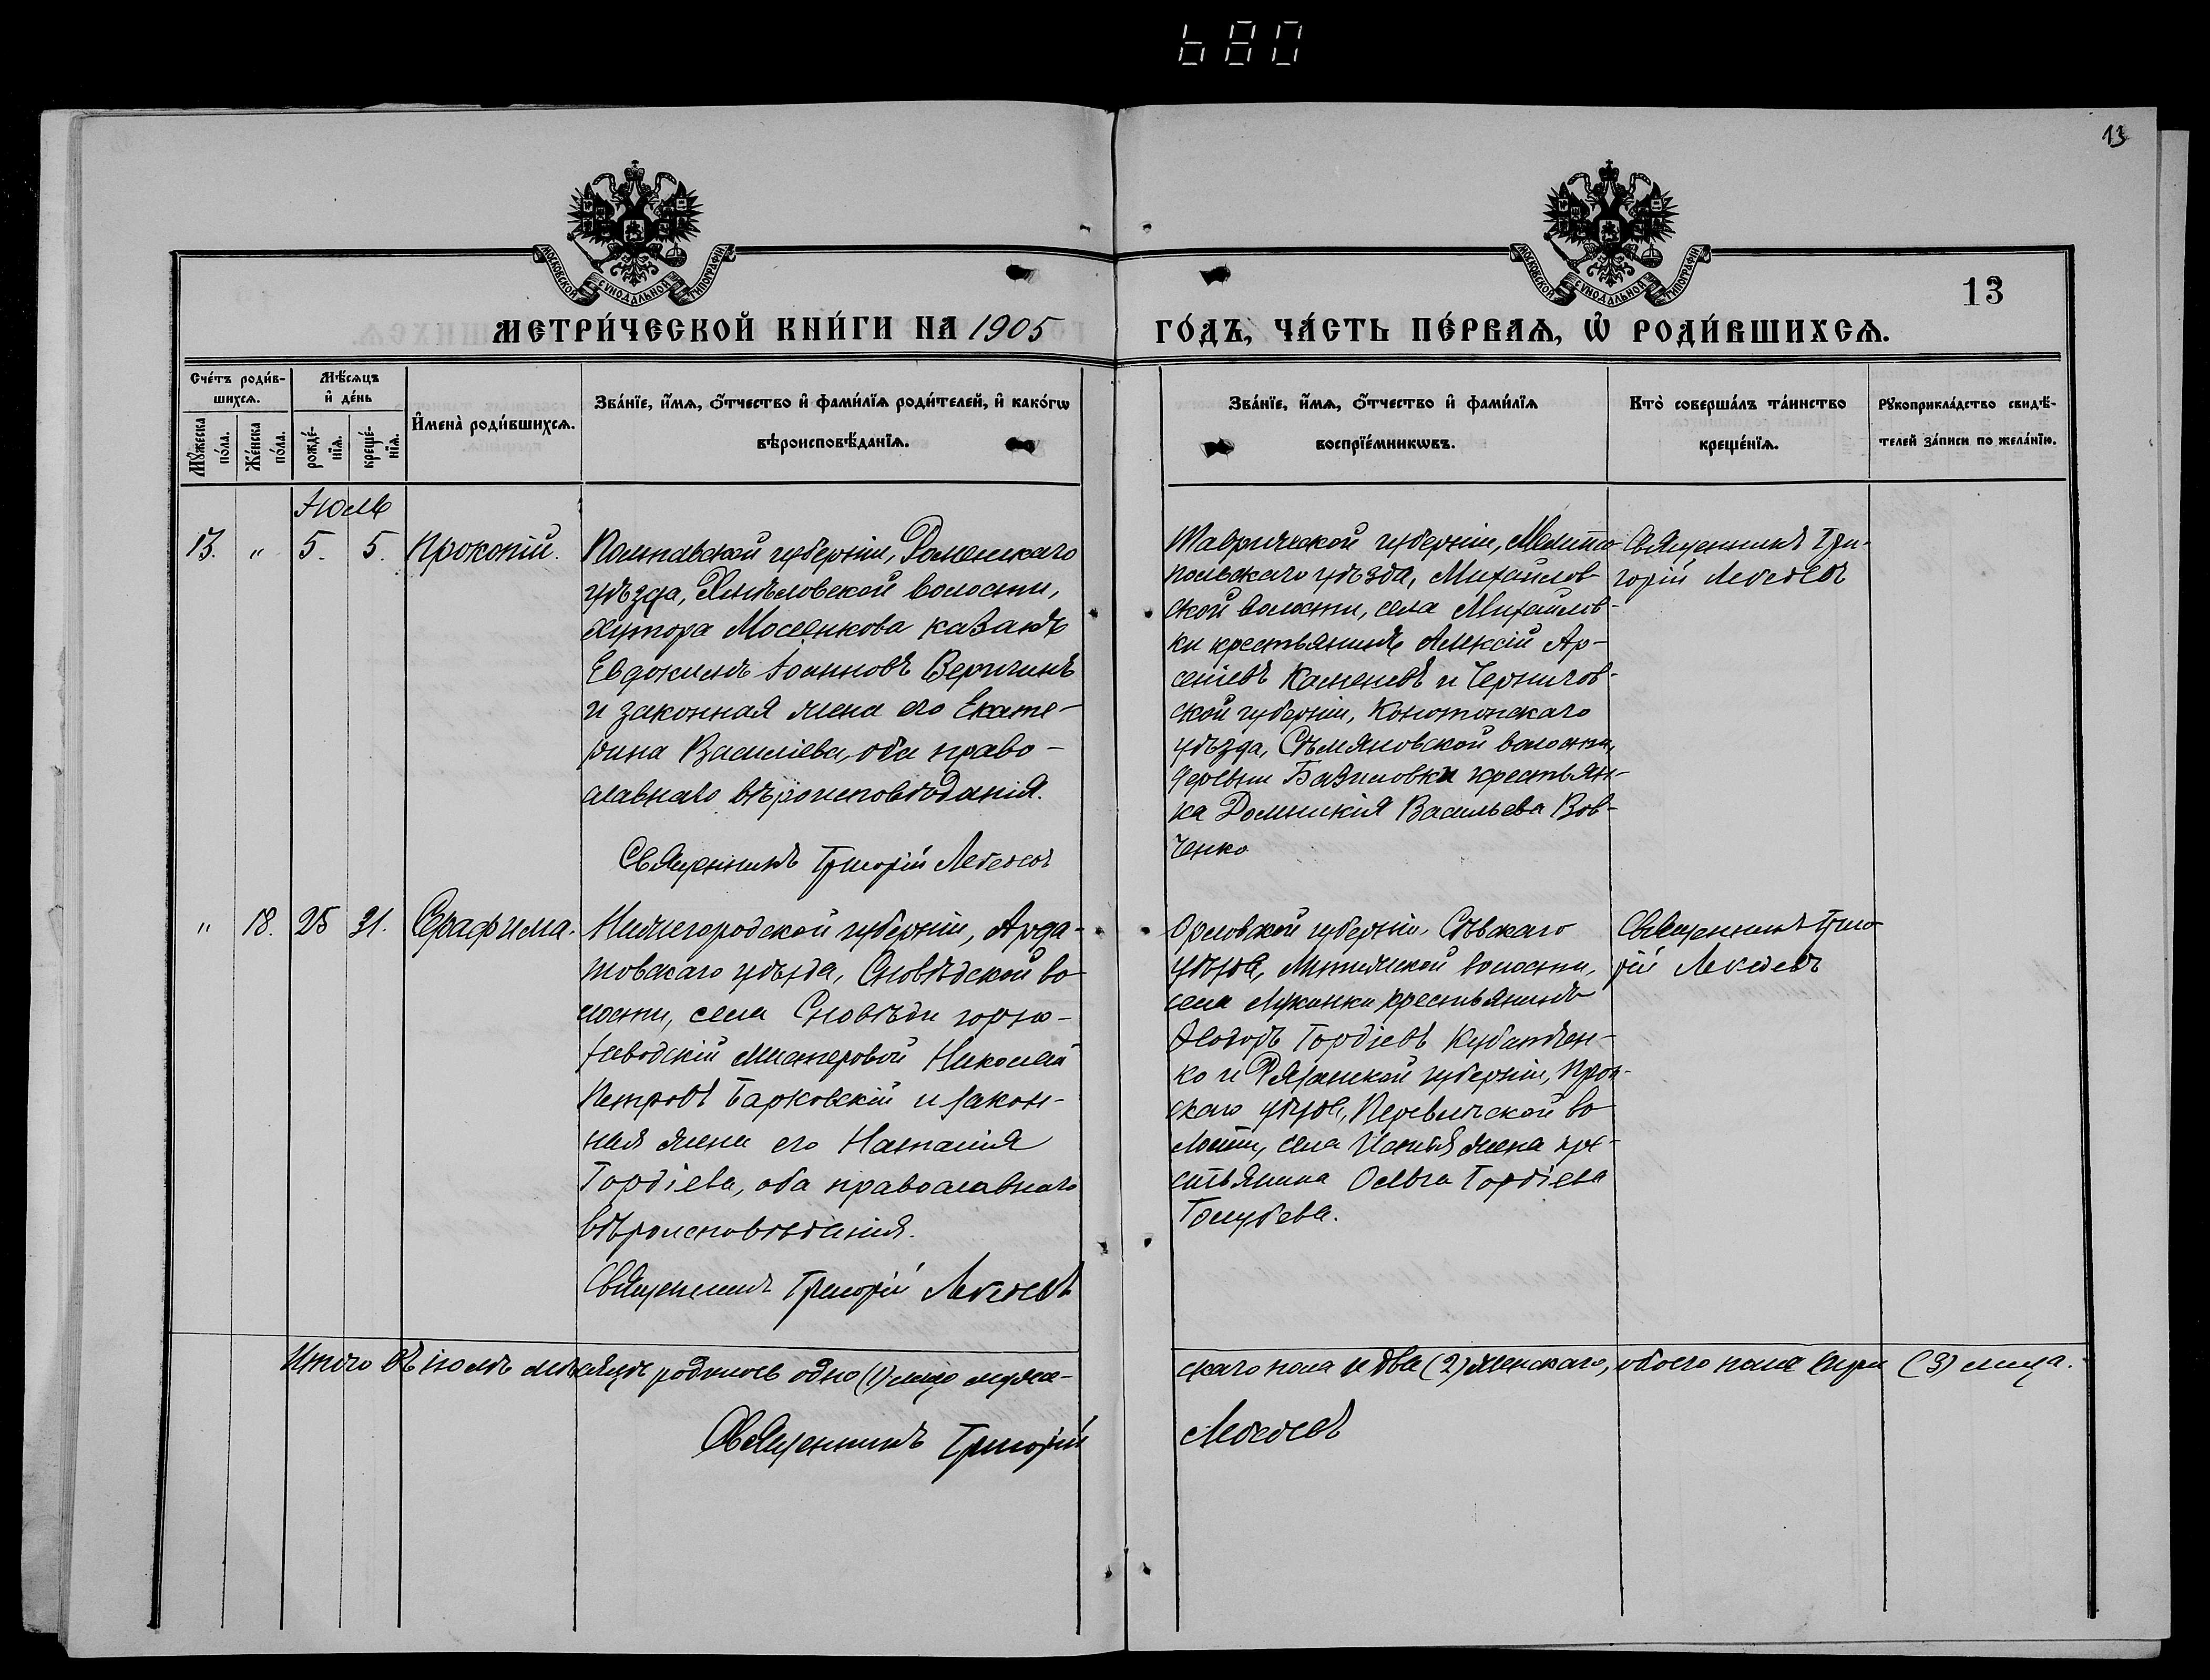 680
13
МОСКОВСКОЙ СѴНОДАЛЬНОЙ ТИПОГРАФІИ
МОСКОВСКОЙ СѴНОДАЛЬНОЙ ТИПОГРАФІИ
13
МЕТРИ́ЧЕСКОЙ КНИ́ГИ НА 1905
ГО́ДЪ, ЧА́СТЬ ПЕ́РВАѦ, Ѡ҆ РОДИ́ВШИХСѦ.
Сче́тъ роди́в-
шихсѧ.
Мꙋ́жеска
по́ла.
Же́нска
по́ла.
Мѣ́сѧцъ
и҆ де́нь
рожде́-
нїѧ.
креще́-
нїѧ.
И҆мена̀ роди́вшихсѧ.
Зва́нїе, и҆́мѧ, ѻ҆́тчество и҆ фами́лїѧ роди́телей, и҆ како́гѡ
вѣроисповѣ́данїѧ.
Зва́нїе, и҆́мѧ, ѻ҆́тчество и҆ фами́лїѧ
воспрїе́мникѡвъ.
Кто̀ соверша́лъ та́инство
креще́нїѧ.
Рꙋкоприкла́дство свидѣ́-
телей за́писи по жела́нїю.
Іюль
13. " 5. 5. Прокопій.
Полтавской губерніи, Роменскаго
уѣзда, волости,
хутора Мосенкова казакъ
Евдокимъ Іоанновъ
и законная жена его Екате-
рина Василіева, оба право-
славнаго вѣроисповѣданія.
Священникъ Григорій Лебедевъ
Таврической губерніи, Мелито-
польскаго уѣзда, Михайлов-
ской волости, села Михайлов-
ки крестьянинъ Алексій Ар-
сеніевъ Каменевъ и Чернигов-
ской губерніи, Конотопскаго
уѣзда, волости,
деревни крестьян-
ка Домникія Васильева Вов-
ченко
Священникъ Гри-
горій Лебедевъ
" 18. 25 31. Серафима.
Нижегородской губерніи, Арда-
товскаго уѣзда, Сновѣдской во-
лости, села Сновѣди горно-
заводскій мастеровой Николай
Петровъ Барковскій и закон-
ная жена его Наталія
Гордіева, оба православнаго
вѣроисповѣданія.
Священникъ Григорій Лебедевъ
Орловской губерніи, Сѣвскаго
уѣзда, волости,
села крестьянинъ
Ѳеодоръ Гордіевъ
ко и Рязанской губерніи, Прон-
скаго уѣзда, во-
лости, села жена кре-
стьянина Ольга Гордіева
Голубева.
Священникъ Григо-
рій Лебедевъ
Итого въ іюлѣ мѣсяцѣ родилось одно (1) лицо муже-
скаго пола и два (2) женскаго, обоего пола три (3) лица.
Священникъ Григорій
Лебедевъ